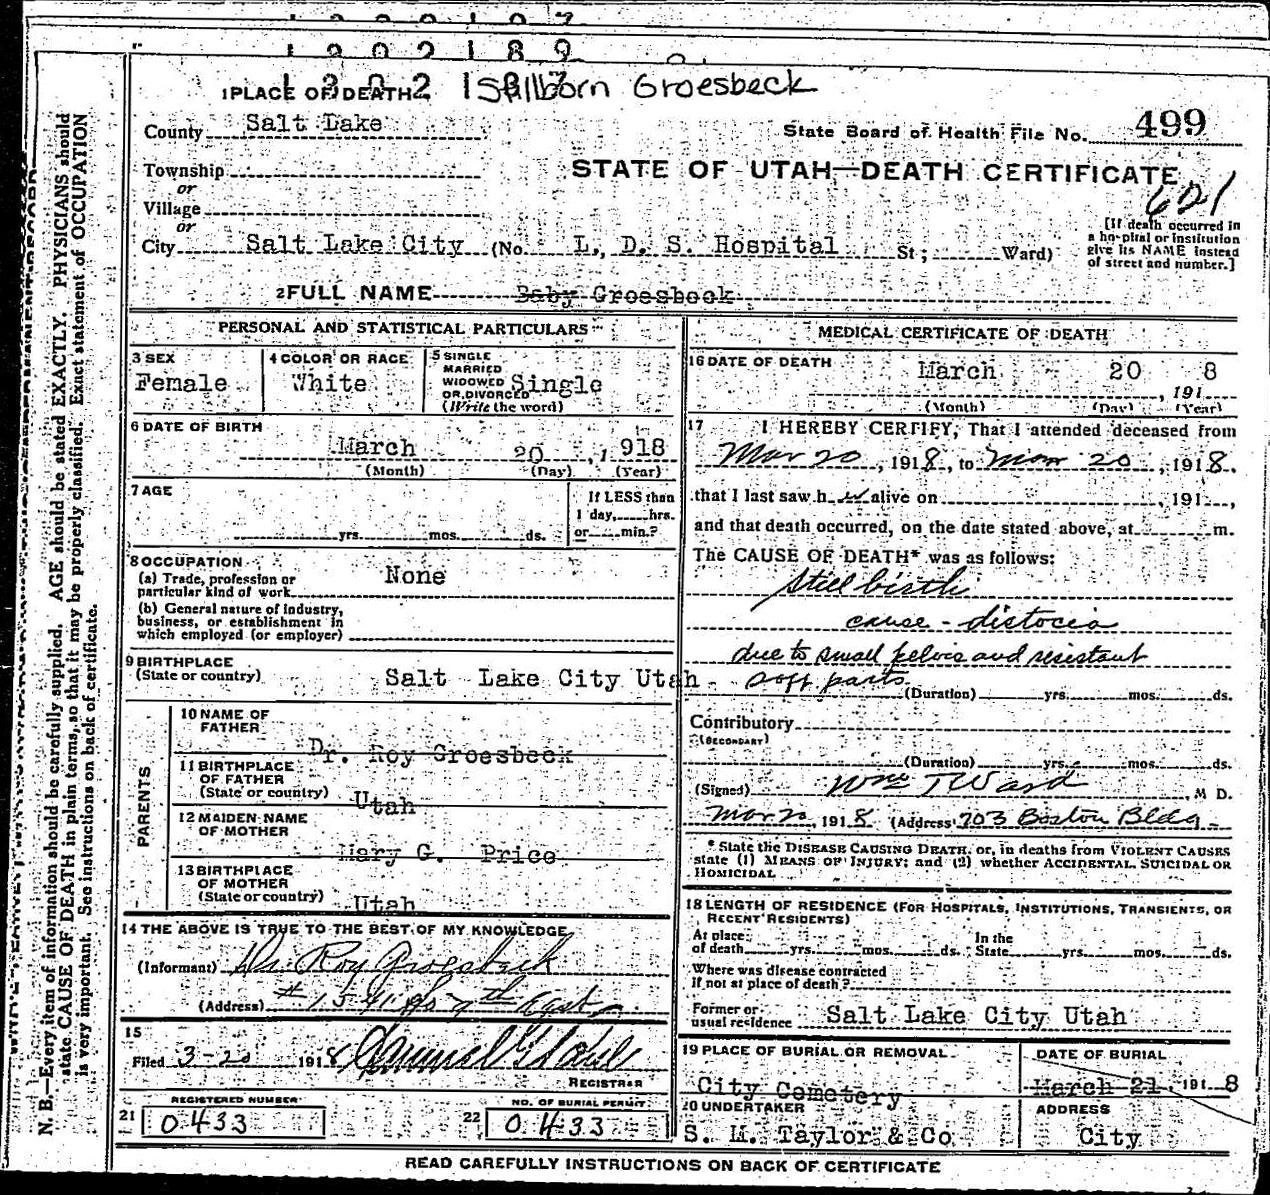 1 2 0 2 1 8 9
1 PLACE OF DEATH Stillborn Groesbeck
County Salt Lake
State Board of Health File No. 499
Township
or
Village
or
STATE OF UTAH—DEATH CERTIFICATE
621
City Salt Lake City (No. L. D. S. Hospital St; Ward)
[If death occurred in
a hospital or institution
give its NAME instead
of street and number.]
2 FULL NAME Baby Groesbeck
PERSONAL AND STATISTICAL PARTICULARS
3 SEX
Female
4 COLOR OR RACE
White
5 SINGLE
MARRIED
WIDOWED
OR DIVORCED
(Write the word)
Single
6 DATE OF BIRTH
March 20, 1 918
(Month) (Day) (Year)
7 AGE
yrs. mos. ds.
If LESS than
1 day, hrs.
or min.?
8 OCCUPATION
(a) Trade, profession or
particular kind of work
None
(b) General nature of industry,
business, or establishment in
which employed (or employer)
9 BIRTHPLACE
(State or country)
Salt Lake City Utah
PARENTS
10 NAME OF
FATHER
Dr. Roy Groesbeck
11 BIRTHPLACE
OF FATHER
(State or country)
Utah
12 MAIDEN NAME
OF MOTHER
Mary G. Price
13 BIRTHPLACE
OF MOTHER
(State or country)
Utah
14 THE ABOVE IS TRUE TO THE BEST OF MY KNOWLEDGE
(Informant) Dr. Roy Groesbeck
(Address) 7th East
15
Filed 3-20 1918
REGISTRAR
REGISTERED NUMBER
21 0433
NO. OF BURIAL PERMIT
22 0433
MEDICAL CERTIFICATE OF DEATH
16 DATE OF DEATH
March 20 8
, 191
(Month) (Day) (Year)
17 I HEREBY CERTIFY, That I attended deceased from
Mar 20, 1918, to Mar 20, 1918.
that I last saw h er alive on , 191 ,
and that death occurred, on the date stated above, at m.
The CAUSE OF DEATH* was as follows:
Stillbirth
cause - distocia
due to small pelvis and resistant
soft parts
(Duration) yrs. mos. ds.
Contributory
(SECONDARY)
(Duration) yrs. mos. ds.
(Signed) Wm T Ward, M D.
Mar 20, 1918 (Address) 703 Boston Bldg -
* State the DISEASE CAUSING DEATH, or, in deaths from VIOLENT CAUSES
state (1) MEANS OF INJURY; and (2) whether ACCIDENTAL, SUICIDAL OR
HOMICIDAL
18 LENGTH OF RESIDENCE (FOR HOSPITALS, INSTITUTIONS, TRANSIENTS, OR
RECENT RESIDENTS)
At place
of death yrs. mos. ds.
In the
State yrs. mos. ds.
Where was disease contracted
if not at place of death?
Former or
usual residence Salt Lake City Utah
19 PLACE OF BURIAL OR REMOVAL
City Cemetery
DATE OF BURIAL
March 21, 191 8
20 UNDERTAKER
S. M. Taylor & Co
ADDRESS
City
READ CAREFULLY INSTRUCTIONS ON BACK OF CERTIFICATE
N. B.—Every item of information should be carefully supplied. AGE should be stated EXACTLY. PHYSICIANS should
state CAUSE OF DEATH in plain terms, so that it may be properly classified. Exact statement of OCCUPATION
is very important. See instructions on back of certificate.